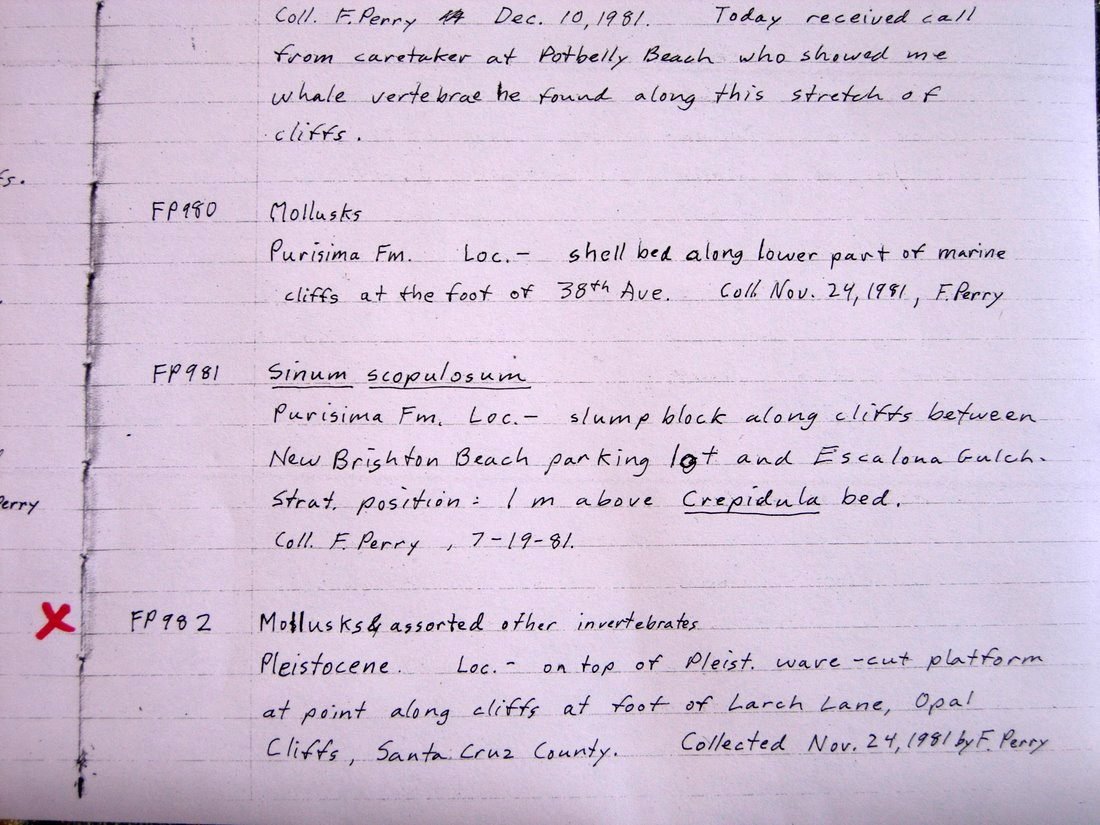 Coll. F. Perry Dec. 10, 1981. Today received call
from caretaker at Potbelly Beach who showed me
whale vertebrae he found along this stretch of
cliffs.
fs.
FP980 Mollusks
Purisima Fm. Loc.- shell bed along lower part of marine
cliffs at the foot of 38th Ave. Coll. Nov. 24, 1981, F. Perry
FP981 Sinum scopulosum
Purisima Fm. Loc.- slump block along cliffs between
New Brighton Beach parking lot and Escalona Gulch.
Strat. position: 1 m above Crepidula bed.
erry
Coll. F. Perry, 7-19-81.
X FP982 Mollusks & assorted other invertebrates
Pleistocene. Loc.- on top of Pleist. wave-cut platform
at point along cliffs at foot of Larch Lane, Opal
Cliffs, Santa Cruz County. Collected Nov. 24, 1981 by F. Perry